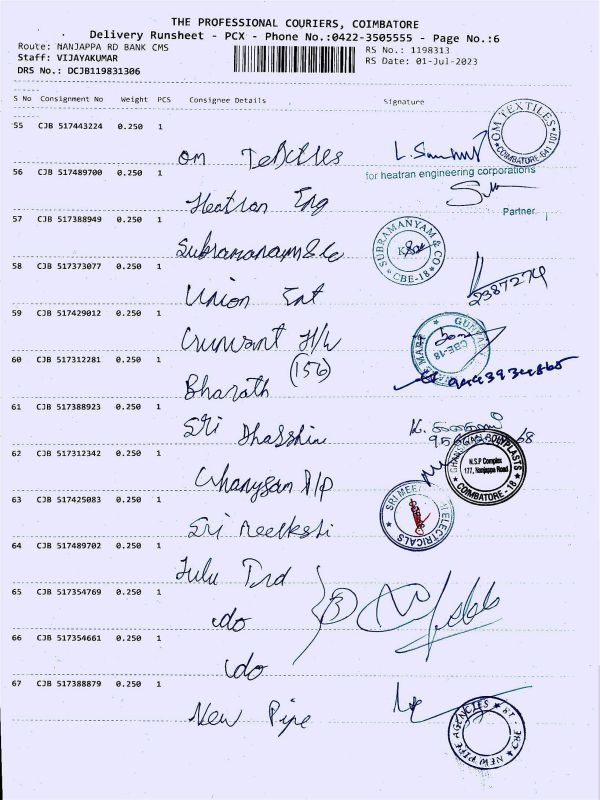 THE PROFESSIONAL COURIERS, COIMBATORE
Delivery Runsheet - PCX - Phone No.:0422-3505555 - Page No.:6
Route: NANJAPPA RD BANK CMS RS No.: 1198313
Staff: VIJAYAKUMAR RS Date: 01-Jul-2023
DRS No.: DCJB119831306
S No Consignment No Weight PCS Consignee Details Signature
55 CJB 517443224 0.250 1
OM TEXTILES COIMBATORE-641 107
Om Textiles
56 CJB 517489700 0.250 1
for heatran engineering corporations
Heatran Eng
Partner
57 CJB 517388949 0.250 1
SUBRAMANYAM & CO CBE-18
Subramanayam & Co
58 CJB 517373077 0.250 1
Union Ent
2387274
59 CJB 517429012 0.250 1
CBE-18
H/W
60 CJB 517312281 1
0.250
(156)
Bharath
61 CJB 517388923 0.250 1
Sri
62 CJB 517312342 0.250 1
POLYPLASTS
N.S.P Complex
177, Nanjappa Road
COIMBATORE - 18
P/P
63 CJB 517425083 0.250 1
SRI MEE ELECTRICALS
Sri
64 CJB 517489702 0.250 1
Trd
65 CJB 517354769 0.250 1
do
66 CJB 517354661 0.250 1
do
67 CJB 517388879 0.250 1
New Pipe
NEW PIPE AGENCIES CBE